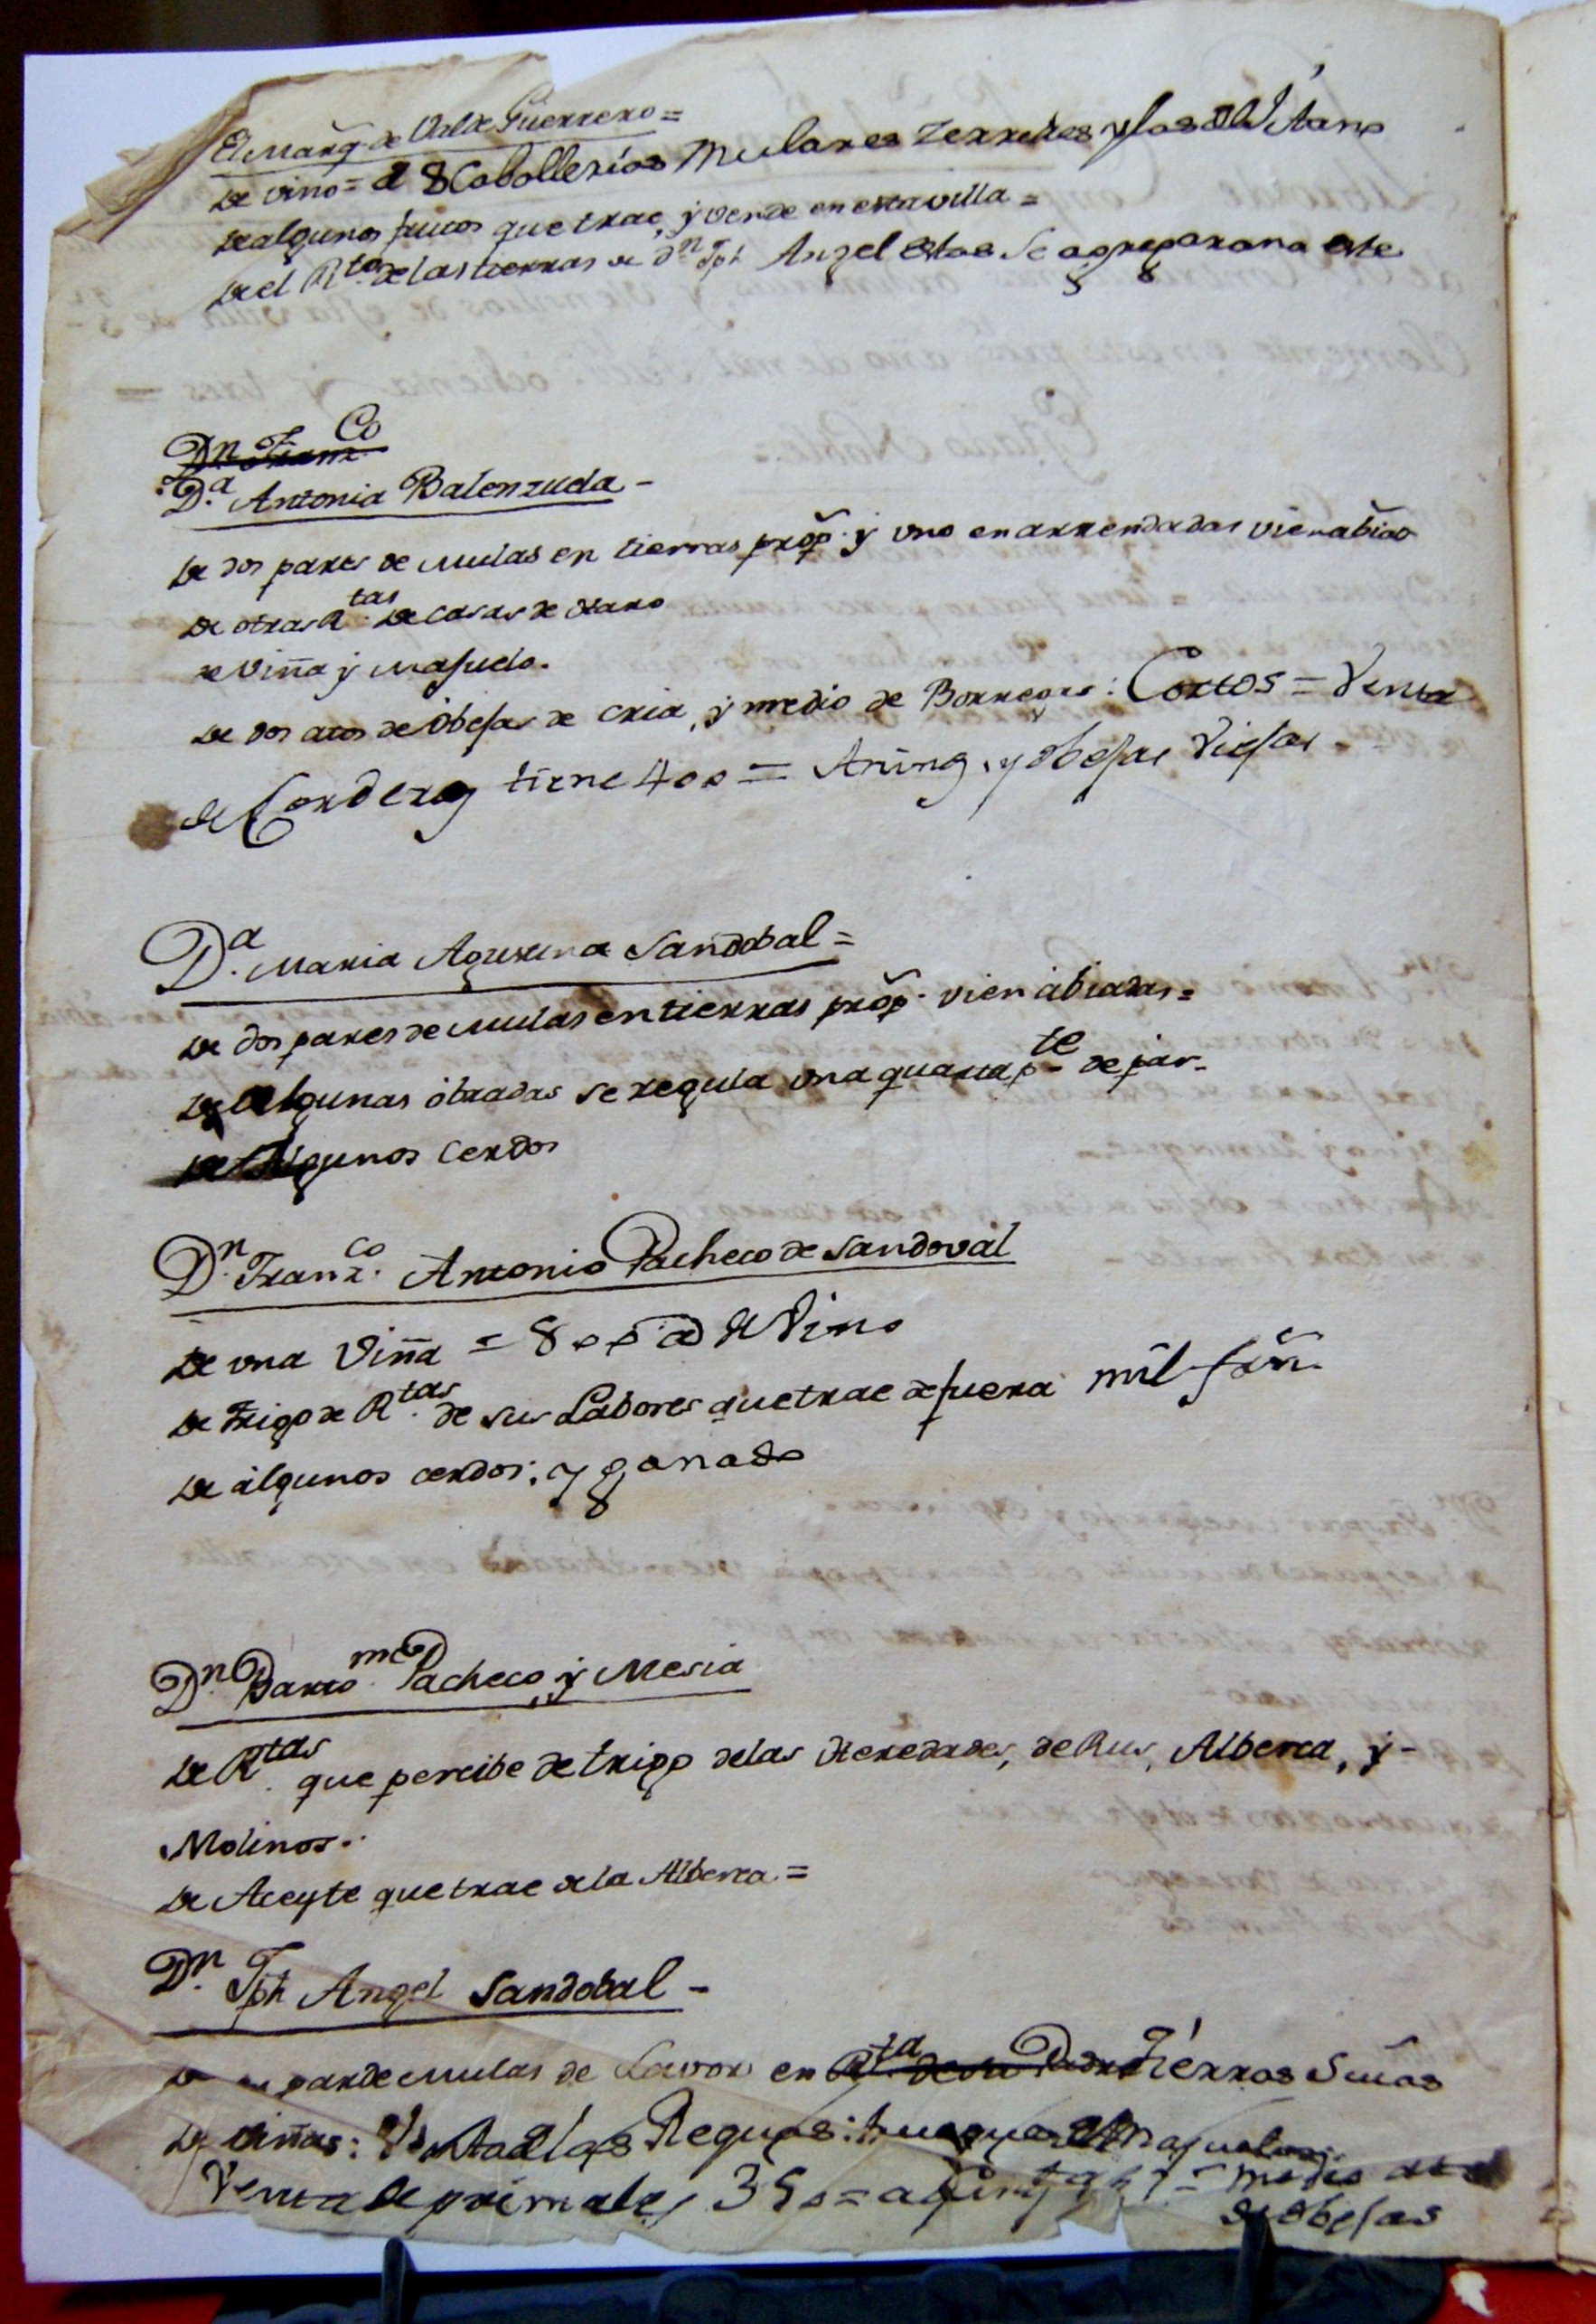 El Marq̃ de Valde Guerrero =
De vino = d 8 Caballerias Mulares Zerriles y las del Vitano
De algunos frutos que trae, y vende en esta villa =
De el Rto. de las tierras de Dn. Jph Angel estas se agregaran a este
Dn Franz.co
Da. Antonia Balenzuela -
De dos pares de Mulas en tierras prop̃. y uno en arrendadas vien abiao
De otras Rtas. de casas de
de Viña y Majuelo.
De dos atos de Obejas de cria, y medio de Borregos: Cortos = Venta
de Corderos tiene 400 = y obejas Viejas.
Da. Maria Agustina Sandobal =
De dos pares de Mulas en tierras prop̃. vien abiadas =
De algunas obradas se regula una quarta pte de par.
De algunos Cerdos
Dn. Franz.co Antonio Pacheco de Sandoval
De una Viña = 800 @ de Vino
De trigo de Rtas. de sus Labores que trae de fuera mil fan̄.
De algunos cerdos; y ganado
Dn. Barto.me Pacheco, y Mesia
De Rtas. que percibe de trigo de las Heredades, de Rus, Alberca, y -
Molinos.
De Aceyte que trae de la Alberca =
Dn. Jph Angel Sandobal -
De un par de Mulas de Lavor en Rta. de su Padre Tierras Suias
De viñas: Venta de las Yeguas:
Venta de primales 350 = medio ato
de obejas